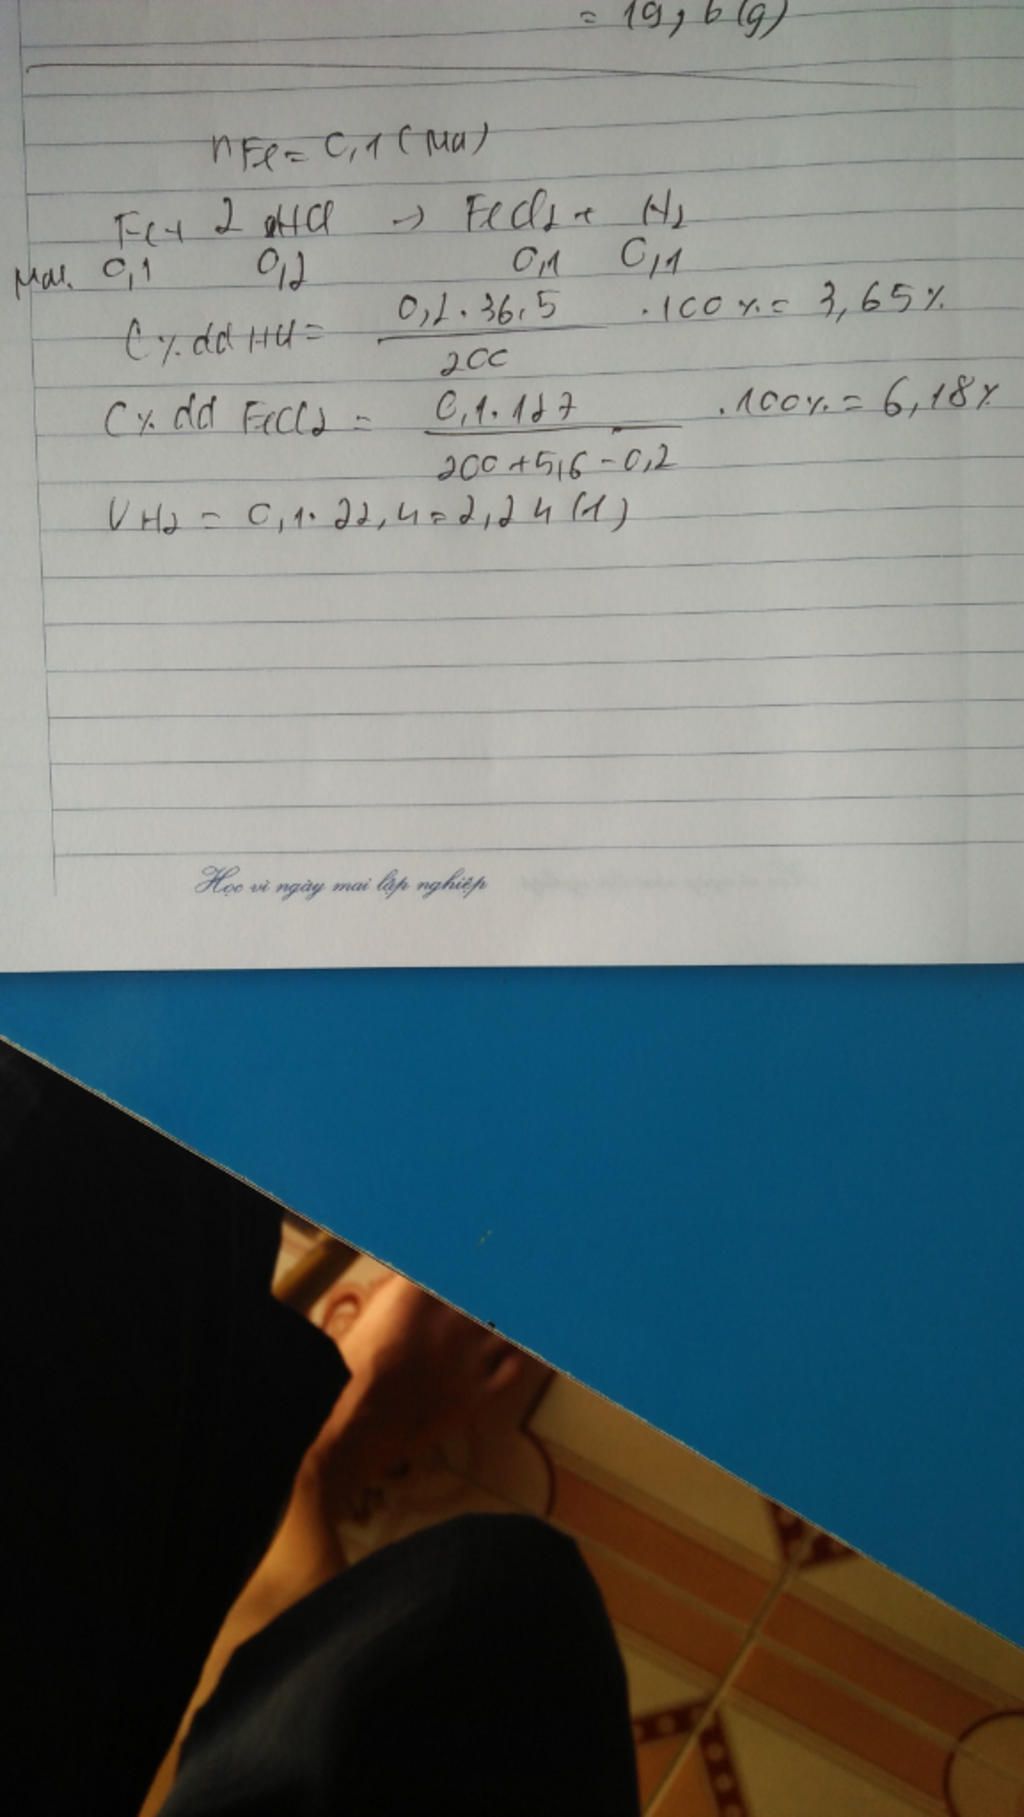 = 19,6(g)
nFe = 0,1 (mol)
Fe + 2 HCl → FeCl2 + H2
mol. 0,1 0,2 0,1 0,1
C% dd HCl = 0,2.36,5 / 200 .100% = 3,65%
C% dd FeCl2 = 0,1.127 / 200+5,6-0,2 .100% = 6,18%
VH2 = 0,1.22,4=2,24(l)
Học vì ngày mai lập nghiệp